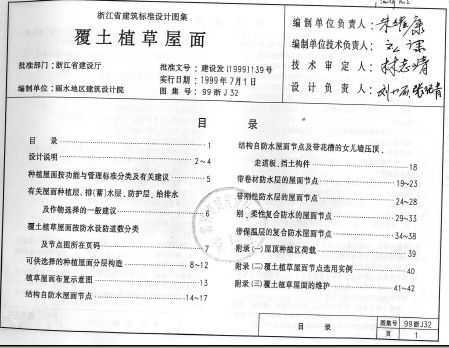 浙江省建筑标准设计图集
覆土植草屋面
批准部门：浙江省建设厅
批准文号：建设发(1999)139号
实行日期：1999年7月1日
编制单位：丽水地区建筑设计院
图集号：99浙J32
编制单位负责人：
编制单位技术负责人：
技术审定人：
设计负责人：
目 录
目 录 1
设计说明 2~4
种植屋面按功能与管理标准分类及有关建议 5
有关屋面种植层、排(蓄)水层、防护层、给排水
及作物选择的一般建议 6
覆土植草屋面按防水设防道数分类
及节点图所在页码 7
可供选择的种植屋面分层构造 8~12
植草屋面布置示意图 13
结构自防水屋面节点 14~17
结构自防水屋面节点及带花槽的女儿墙压顶、
走道板、挡土构件 18
带卷材防水层的屋面节点 19~23
带刚性防水层的屋面节点 24~28
刚、柔性复合防水的屋面节点 29~33
带保温层的复合防水屋面节点 34~38
附录(一)屋顶种植区荷载 39
附录(二)覆土植草屋面节点选用实例 40
附录(三)覆土植草屋面的维护 41~42
目 录
图集号 99浙J32
页 1